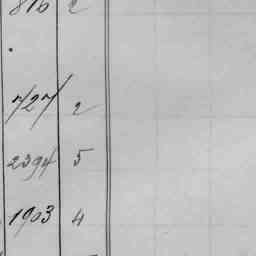 816 2
727 2
2394 5
1903 4